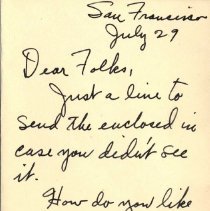 San Francisco
July 29
Dear Folks,
Just a line to
send the enclosed in
case you didn't see
it.
How do you like